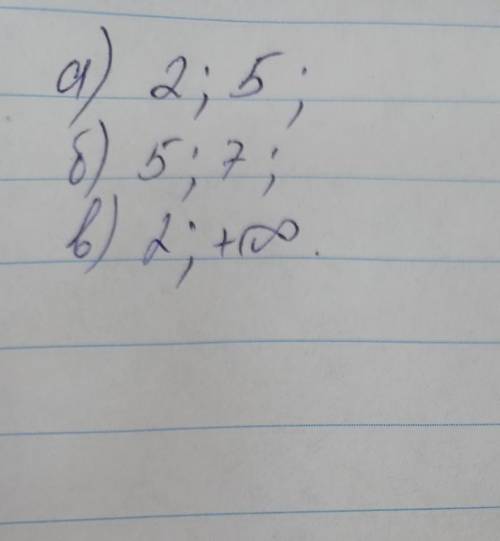 а) 2; 5;
б) 5; 7;
в) 2; +∞.